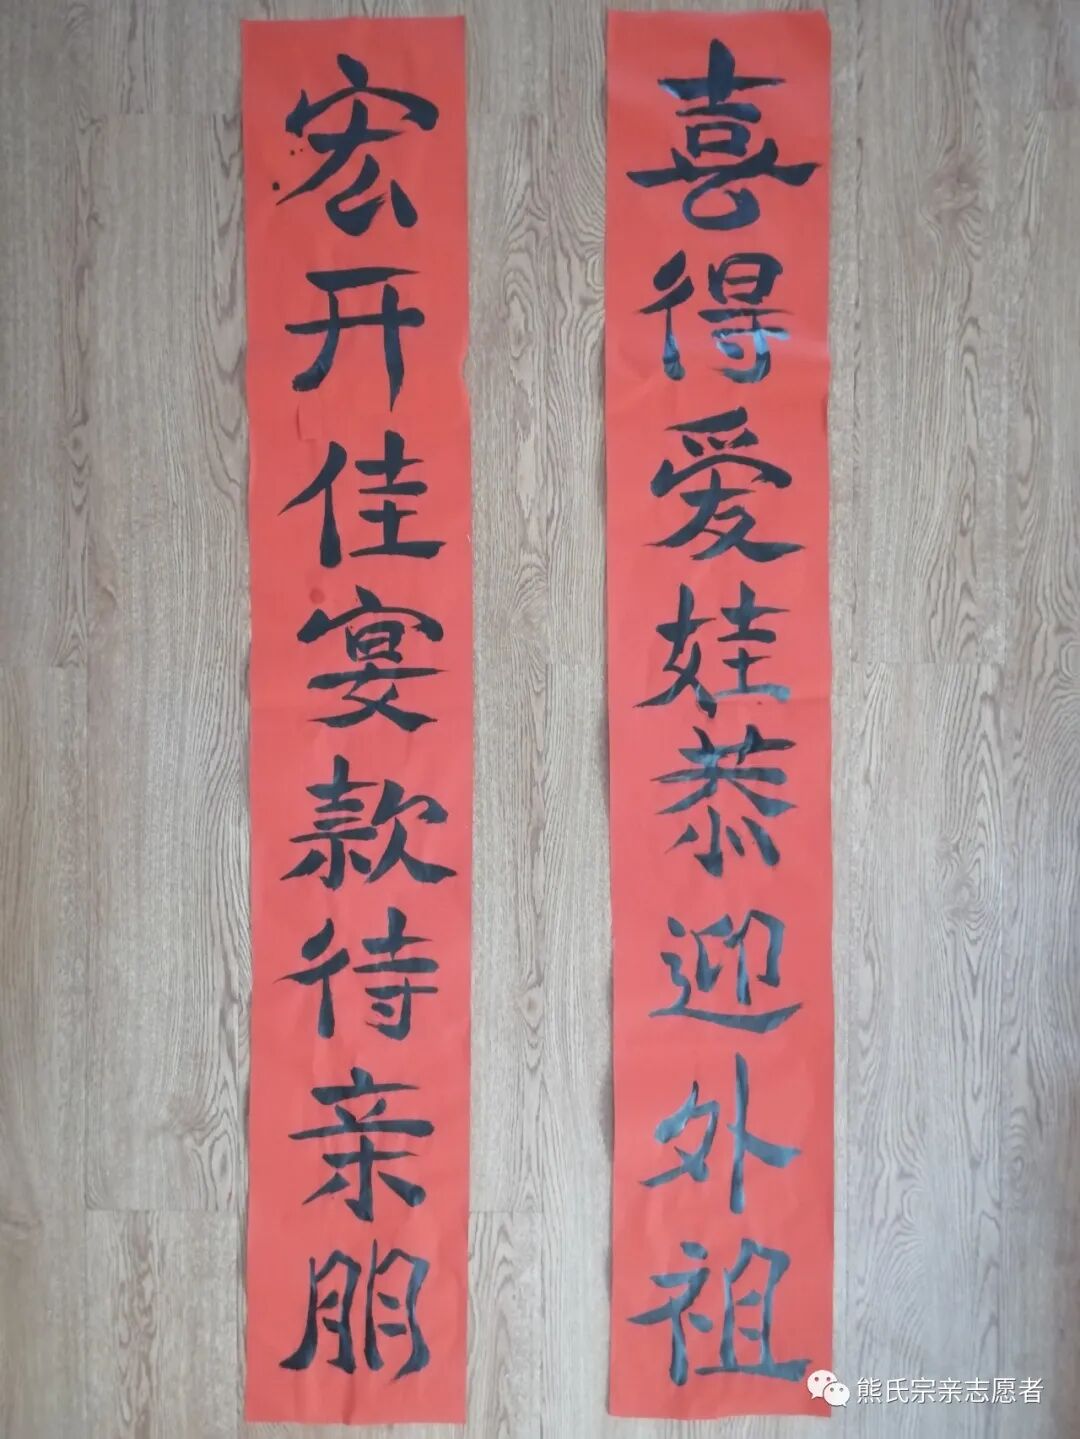 喜得爱娃恭迎外祖
宏开佳宴款待亲朋
熊氏宗亲志愿者